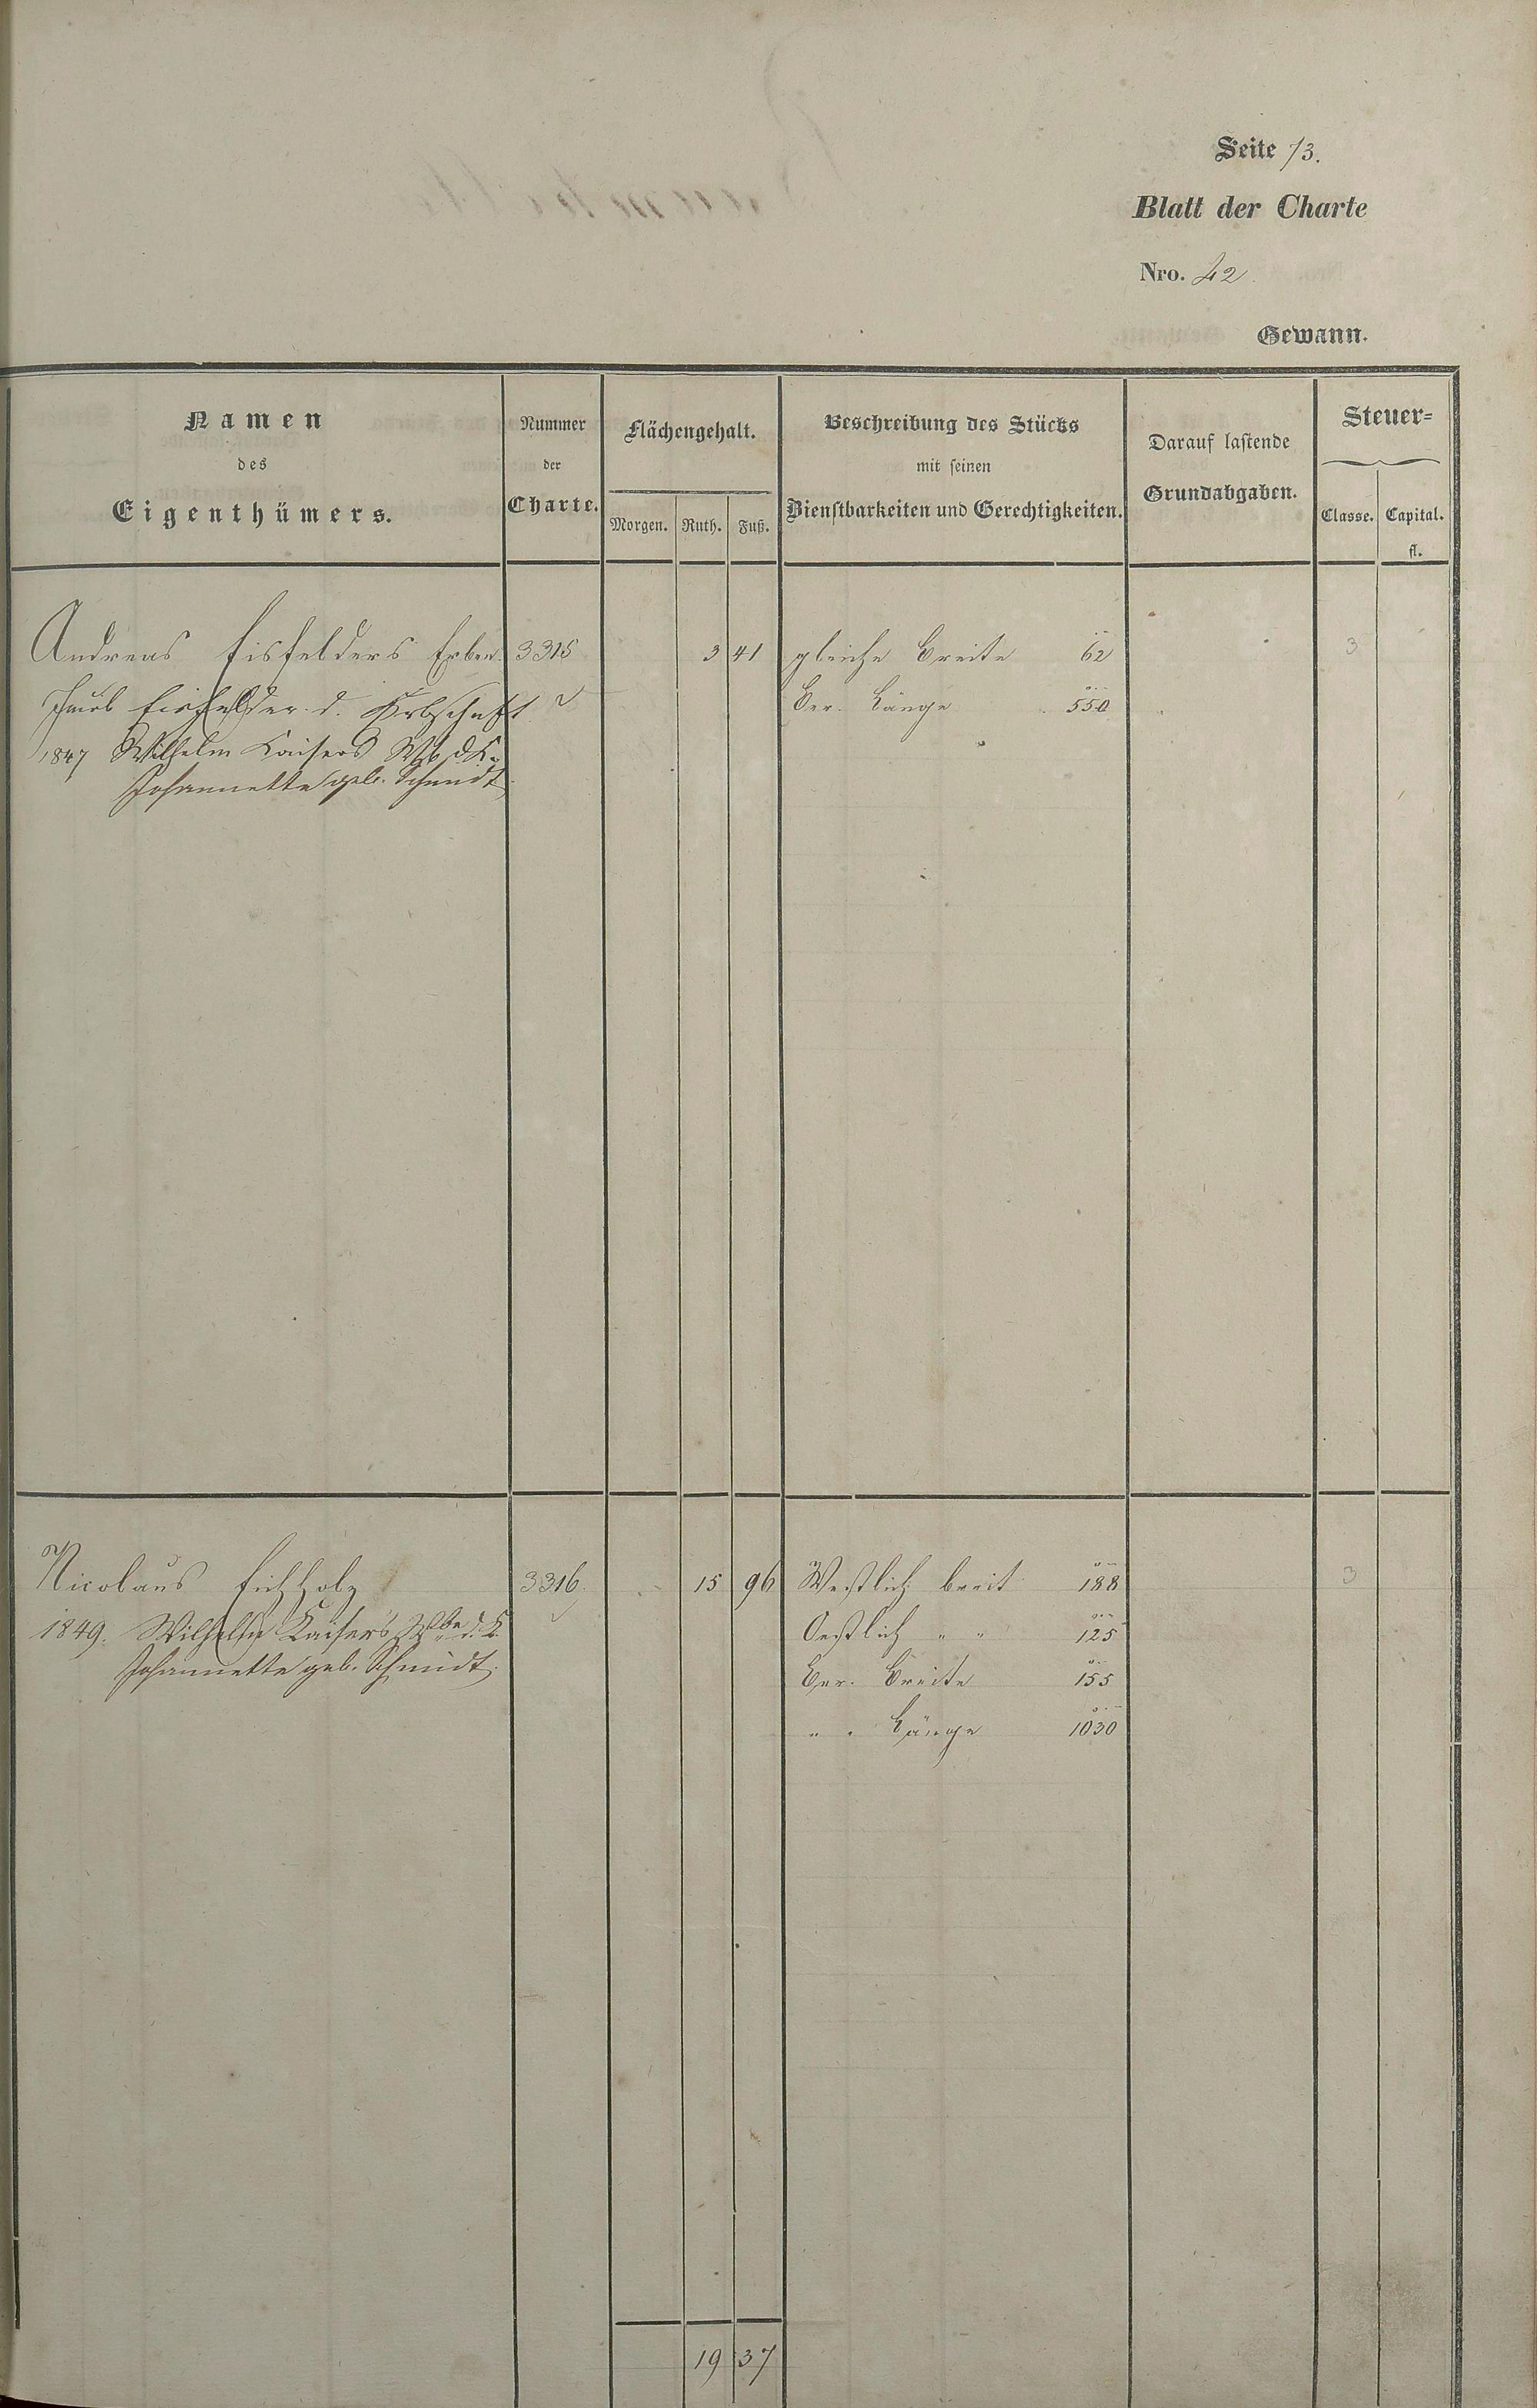 Seite 13.
Blatt der Charte
Nro. 42.
Gewann.
Namen
des
Eigenthümers.
Nummer
der
Charte.
Flächengehalt.
Morgen. Ruth. Fuß.
Beschreibung des Stücks
mit seinen
Dienstbarkeiten und Gerechtigkeiten.
Darauf lastende
Grundabgaben.
Steuer=
Classe. Capital.
fl.
Andreas Eisfelders Erben 3315 3 41 gleiche Breite 62 3
Jacob Eisfelder d. Erbschaft Ber. Länge 550
1847 Wilhelm Kaisers Wb d. K.
Johannette geb. Schmidt
Nicolaus Eichholz 3316. 15 96 Westlich breit 188 3
1849. Wilhelm Kaisers Wbe d. K. Oestlich " " 125
Johannette geb. Schmidt. Ber. Breite 155
" " Länge 1030
19 37